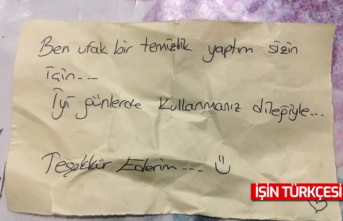 Ben ufak bir temizlik yaptım sizin
için...
İyi günlerde kullanmanız dileğiyle...
Teşekkür Ederim... Ü
İŞİN TÜRKÇESİ